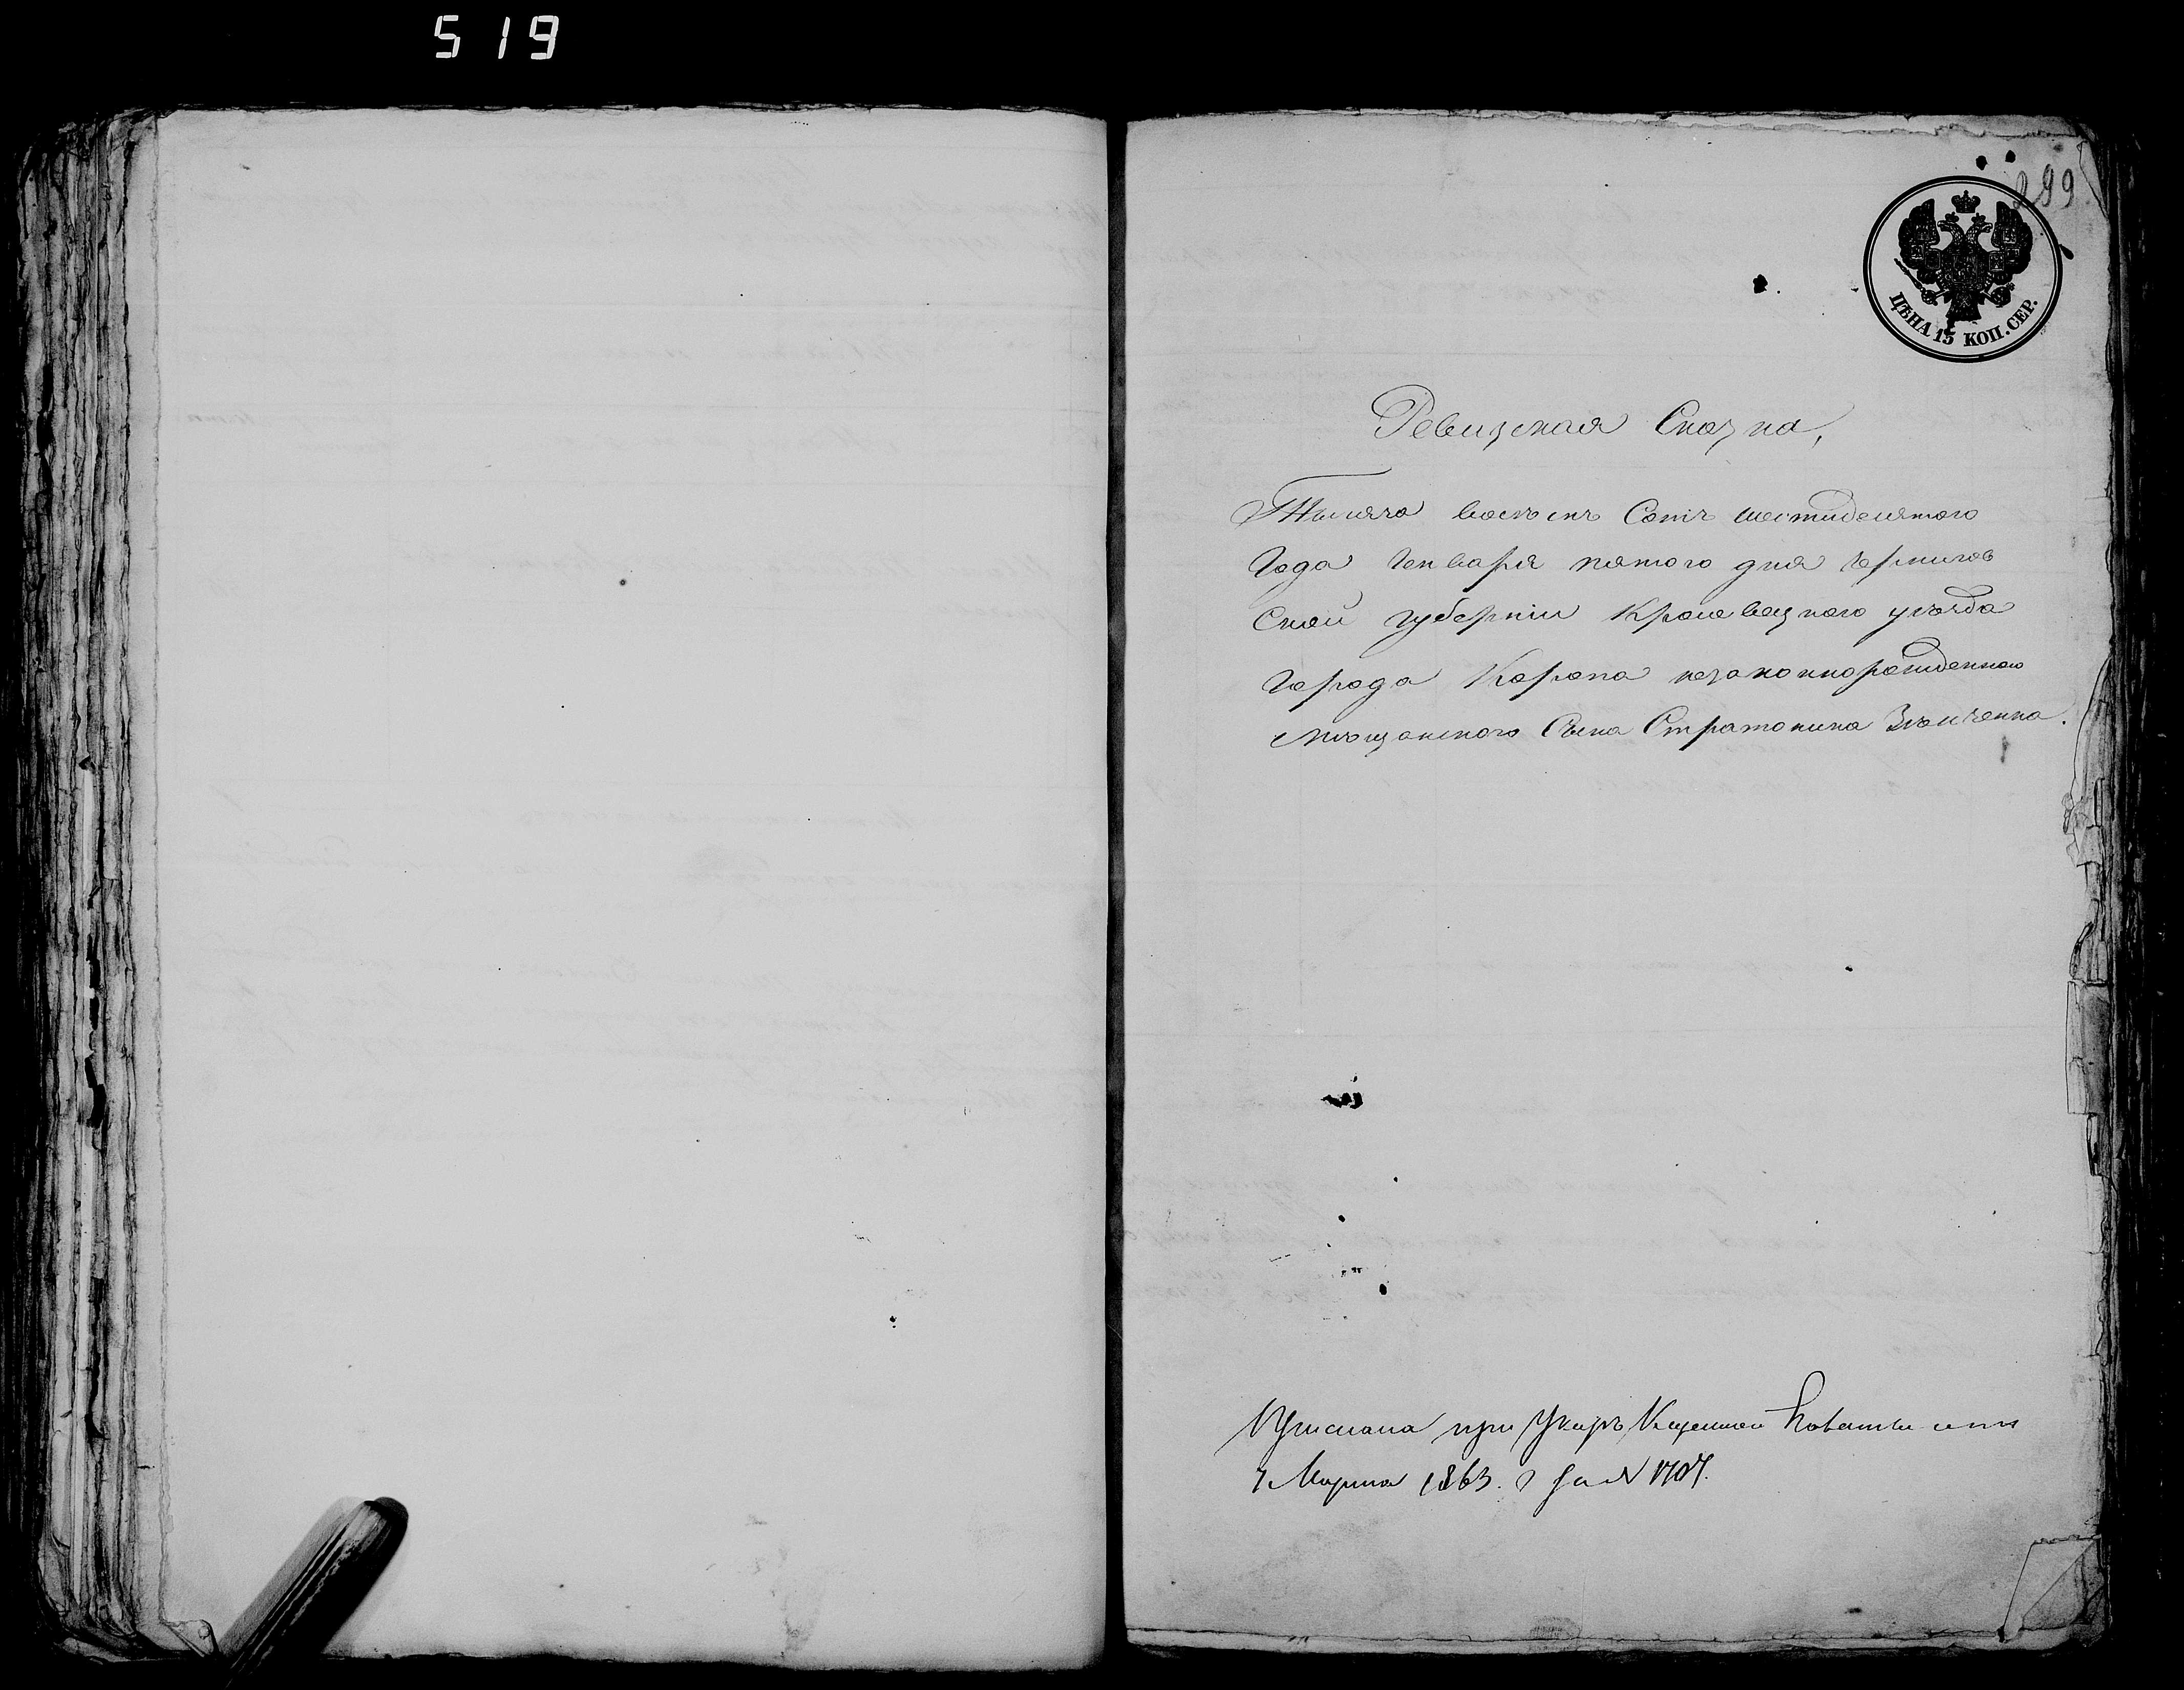 519
299
ЦѢНА 15 КОП. СЕР.
Ревизская Сказка,
Тысяча восемъ Сотъ шестидесятого
Года Генваря пятого дня Чернигов
Ской губерніи Кролевецкого уѣзда
Города Коропа незаконнорожденного
мѣщанского Сына Стратоника
при
7 Марта 1863. за № 1707.